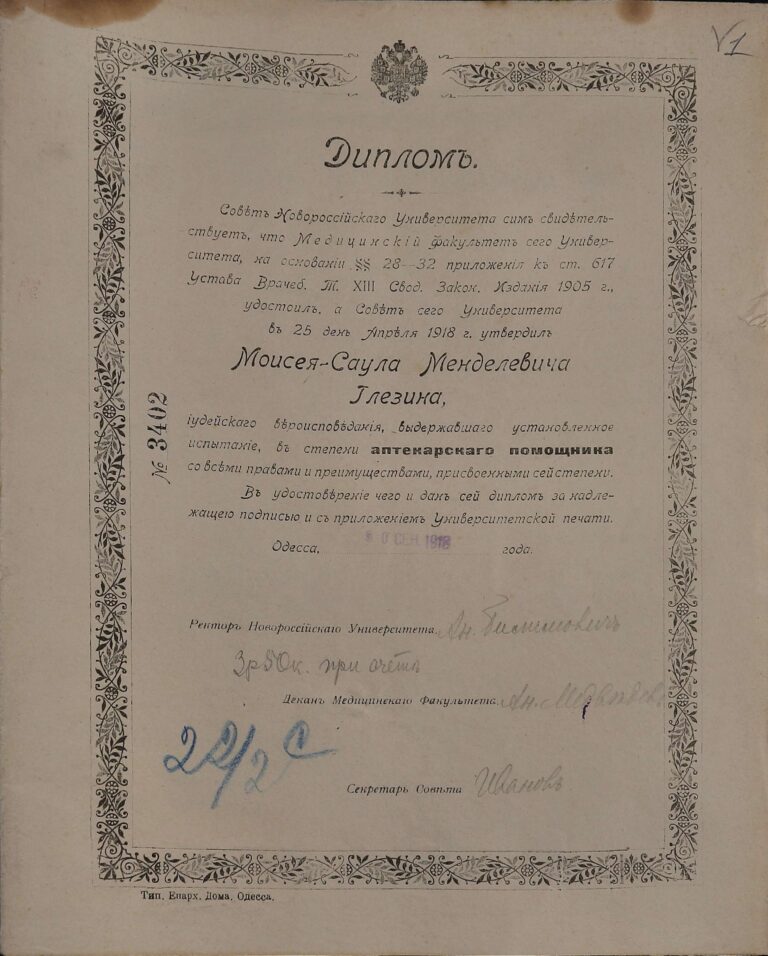 V1
Дипломъ.
Совѣтъ Новороссійскаго Университета симъ свидѣтель-
ствуетъ, что Медицинскій факультетъ сего Универ-
ситета, на основаніи §§ 28—32 приложенія къ ст. 617
Устава Врачеб. Т. XIII Свод. Закон. Изданія 1905 г.,
удостоил, а Совѣтъ сего Университета
въ 25 день Апрѣля 1918 г. утвердилъ
Моисея-Саула Менделевича
Глезина,
іудейскаго вѣроисповѣданія, выдержавшаго установленное
испытаніе, въ степени аптекарскаго помощника
со всѣми правами и преимуществами, присвоенными сей степени.
Въ удостовѣреніе чего и данъ сей диплом за надле-
жащею подписью и съ приложеніемъ Университетской печати.
Одесса, СЕН. 1918 года.
№ 3402
Ректоръ Новороссійскаго Университета Ан.
3р50к. при
Деканъ Медицинскаго Факультета Ан.
22/2 С
Секретарь Совѣта Ивановъ
Тип. Епарх. Дома, Одесса.